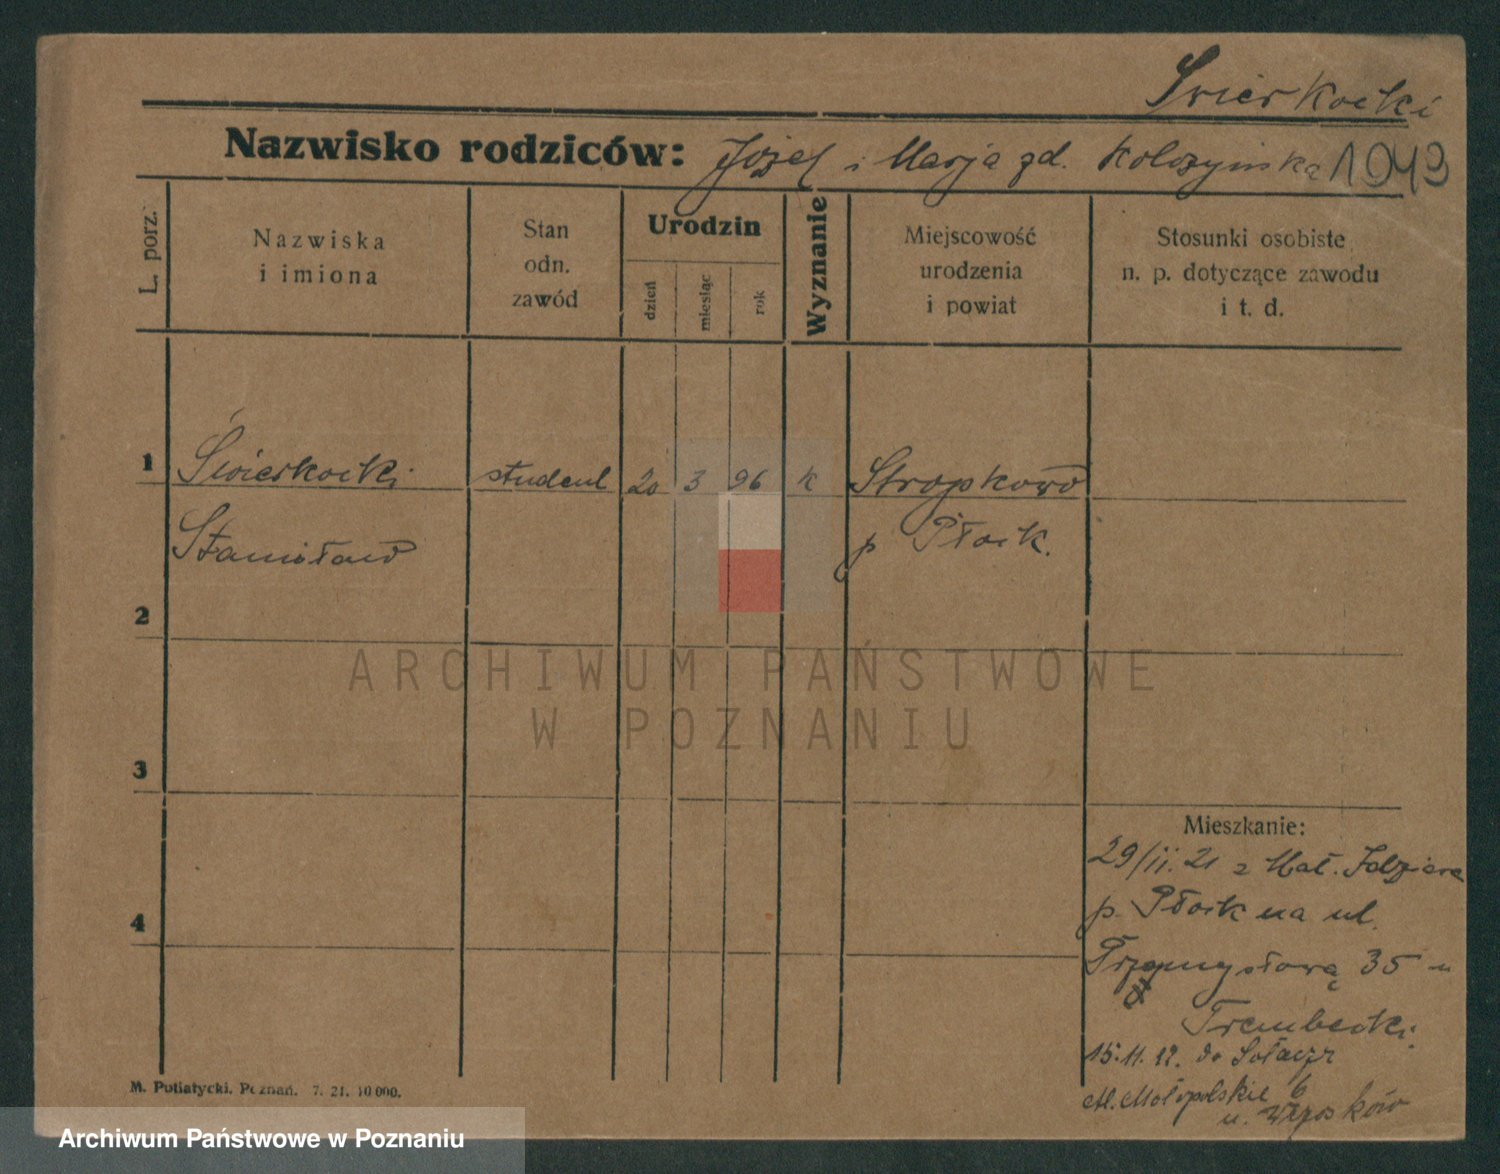 Świerkocki
Nazwisko rodziców: Józef i Marja zd. Kolczyńska 1949
L. porz.
Nazwiska
i imiona
Stan
odn.
zawód
Urodzin
dzień
miesiąc
rok
Wyznanie
Miejscowość
urodzenia
i powiat
Stosunki osobiste
n. p. dotyczące zawodu
i t. d.
1 Świerkocki student 20 3 96 k Stropkowo
Stanisław p Płock.
2
3
4
ARCHIWUM PAŃSTWOWE
W POZNANIU
Mieszkanie:
29/11. 21 z
p. Płock na ul.
Przemysłową 35 u
Trembecki.
15.11. do Sołacza
6
u.
M. Putiatycki, Poznań. 7. 21. 10 000.
Archiwum Państwowe w Poznaniu